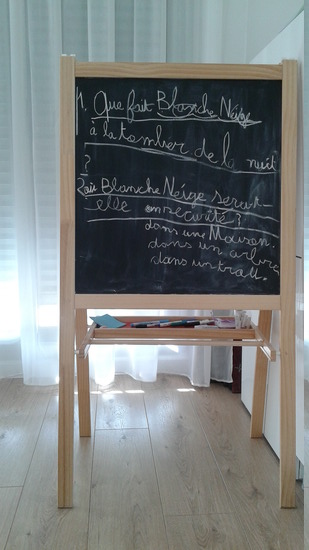 1. Que fait Blanche Neige
à la tomber de la nuit
?
2 Où Blanche Neige serait-
elle en sécurité ?
dans une Maison.
dans un arbre
dans un trou.